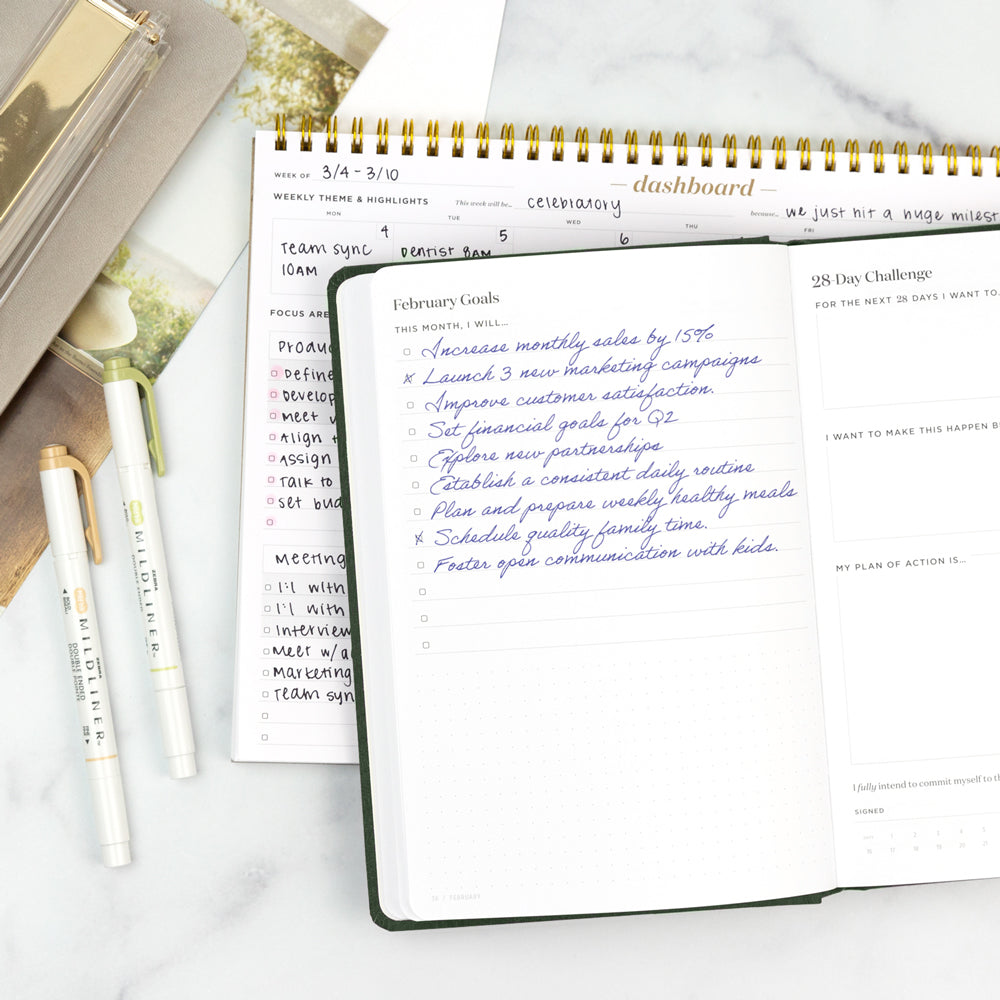 WEEK OF 3/4 - 3/10
— dashboard —
WEEKLY THEME & HIGHLIGHTS
This week will be... celebratory
because... we just hit a huge
MON TUE WED THU FRI
4 5 6
Team sync
10AM
Dentist 8AM
FOCUS
Define
Develop
Meet
Align
Assign
Talk to
Set
Meeting
1:1 with
1:1 with
Interview
Meet w/
Marketing
Team sync
February Goals
THIS MONTH, I WILL...
Increase monthly sales by 15%
x Launch 3 new marketing campaigns
Improve customer satisfaction.
Set financial goals for Q2
Explore new partnerships
Establish a consistent daily routine
Plan and prepare weekly healthy meals
x Schedule quality family time.
Foster open communication with kids.
/ FEBRUARY
28-Day Challenge
FOR THE NEXT 28 DAYS I WANT TO...
I WANT TO MAKE THIS HAPPEN
MY PLAN OF ACTION IS...
I fully intend to commit myself to
SIGNED
1 2 3 4 5
16 17 18 19 20 21
MILDLINER
ZEBRA
DOUBLE ENDED
MILDLINER
ZEBRA
DOUBLE ENDED